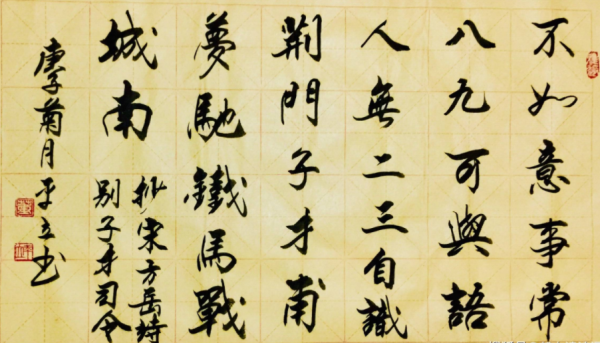 不如意事常
八九可與語
人無二三自識
荆門子才甫
夢馳鐵馬戰
城南
抄宋方岳詩
别子才司令
庚子菊月平立书